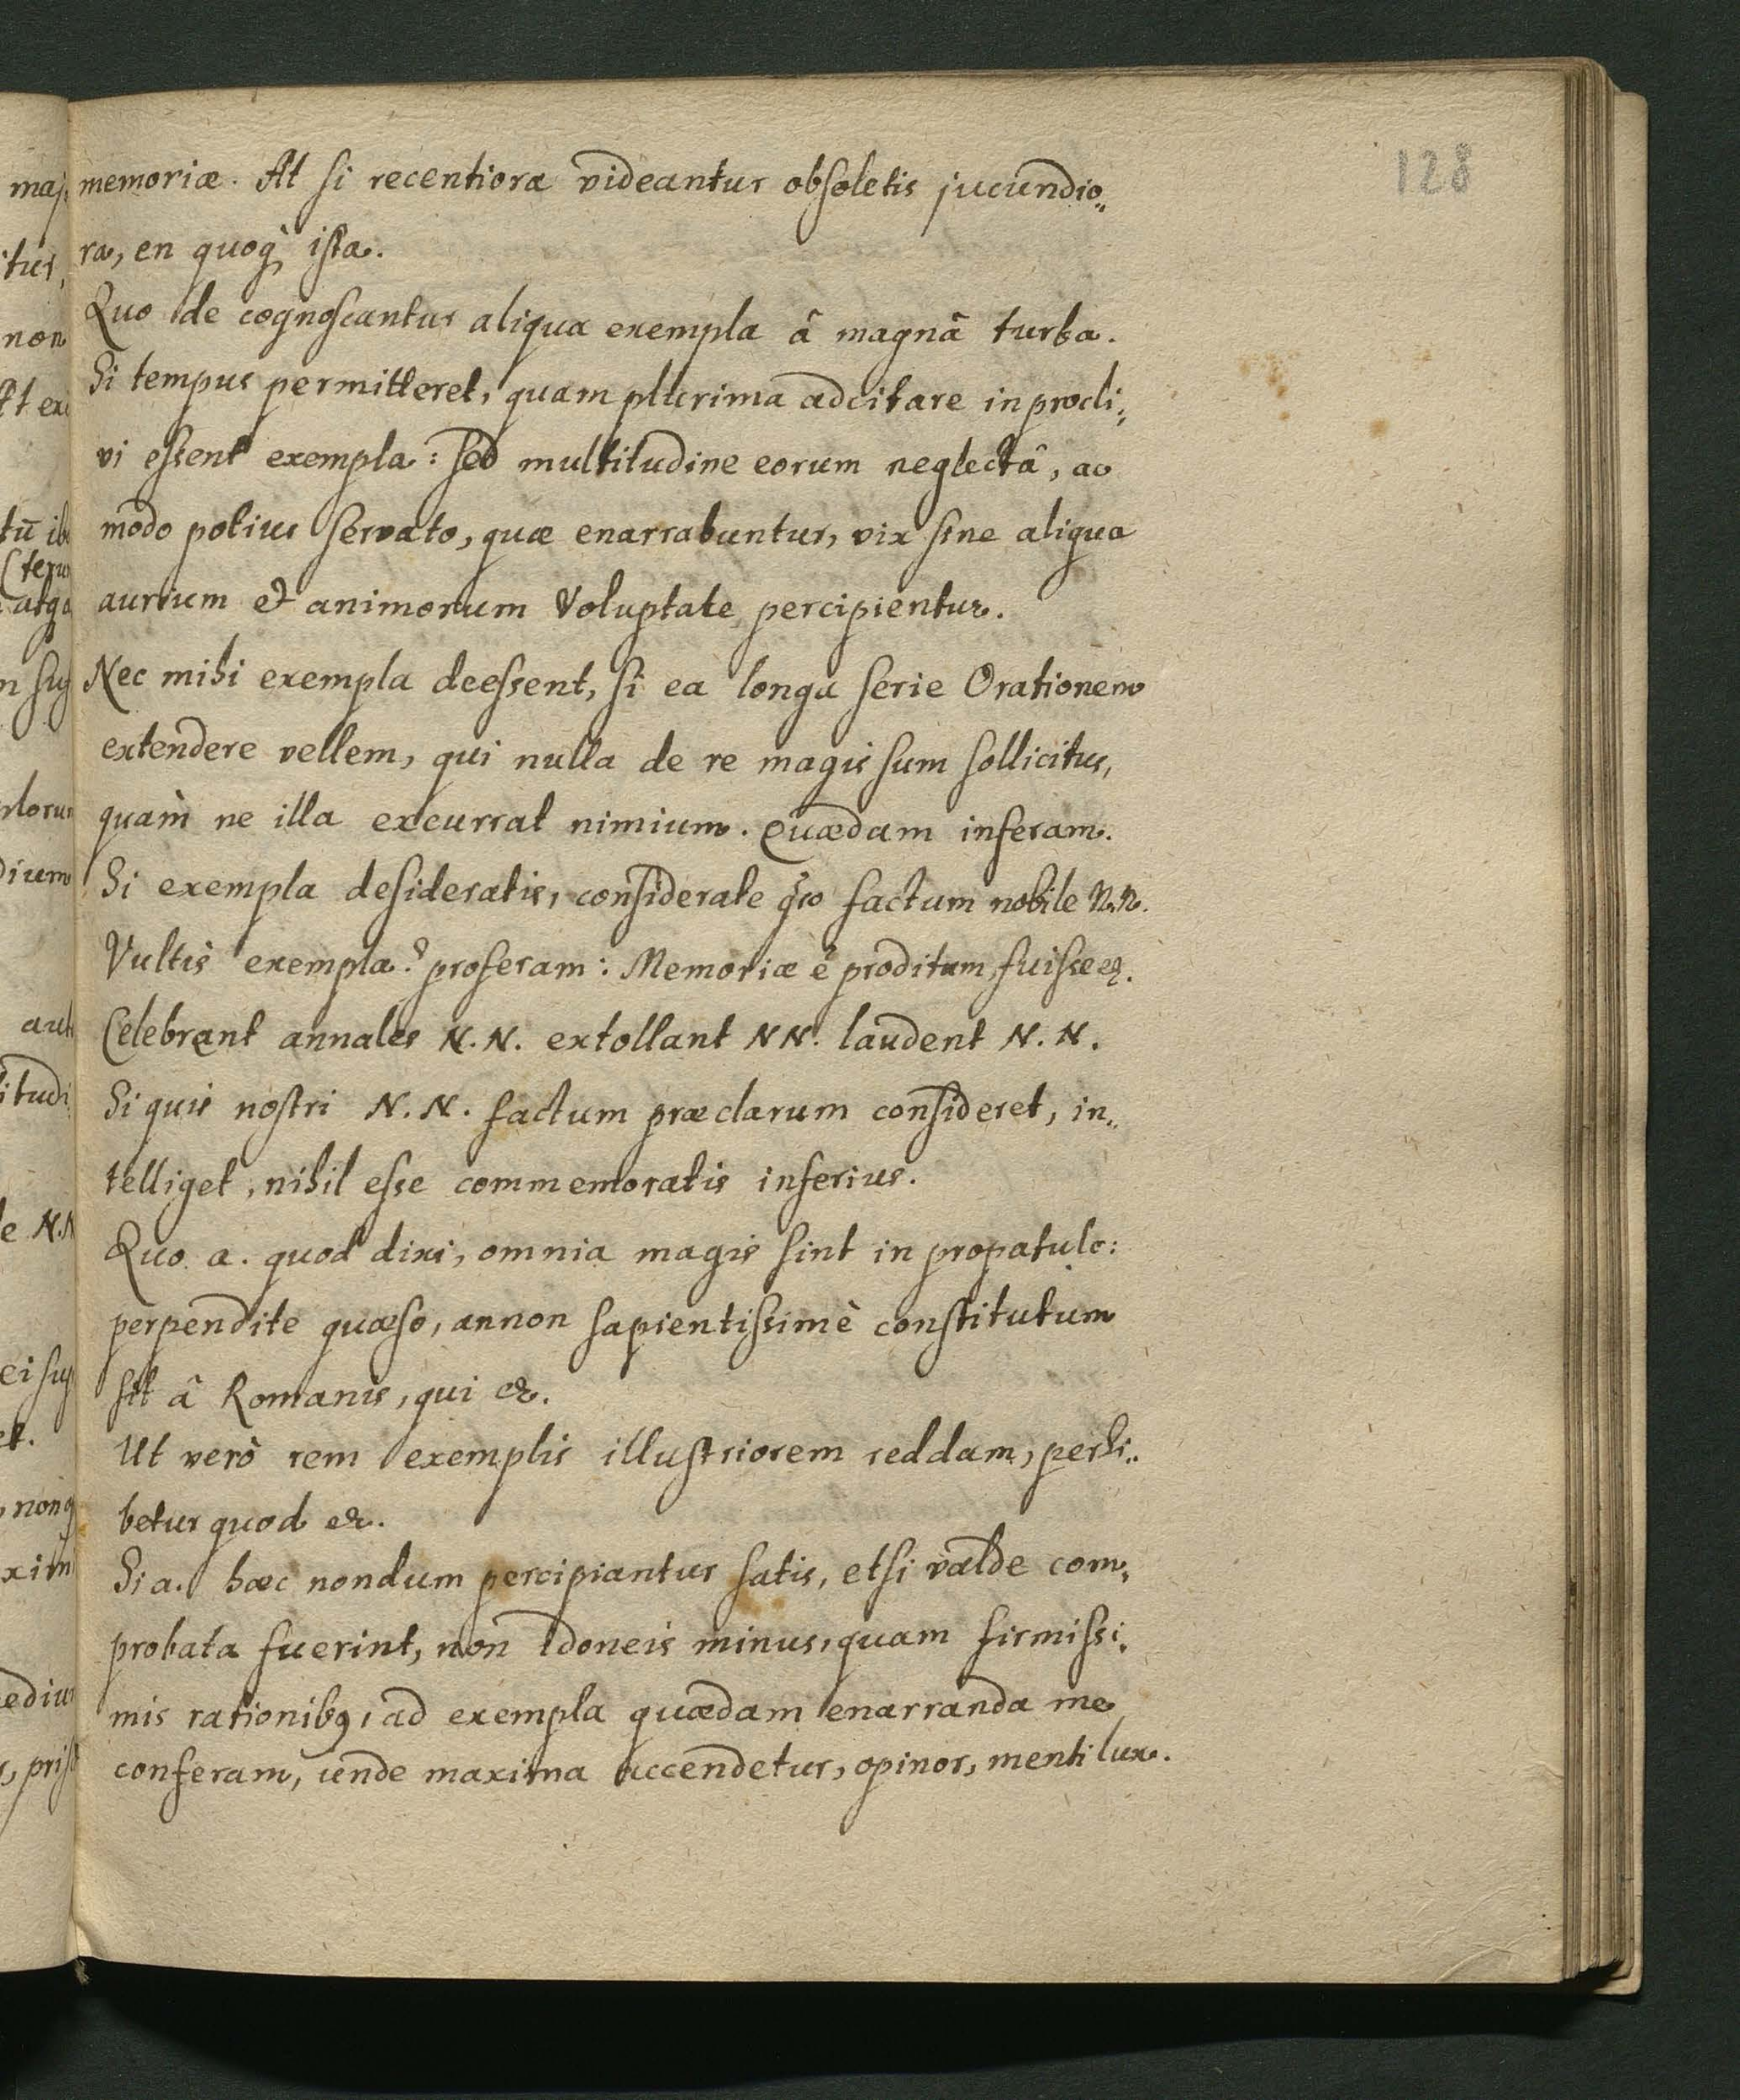 128
memoriæ. At si recentiora videantur obsoletis jucundio„
ra, en quoq; ista.
Quo de cognoscantur aliqua exempla â magnâ turba.
Si tempus permitteret, quam plurima adcitare in procli„
vi essent exempla: sed multitudine eorum neglectâ, ac
modo potius servato, quæ enarrabuntur, vix sine aliqua
aurium et animorum Voluptate percipientur.
Nec mihi exempla deessent, si ea longa serie Orationem
extendere vellem, qui nulla de re magis sum sollicitus,
quàm ne illa excurrat nimium. Quædam inferam.
Si exempla desideratis, considerate qso factum nobile N.N.
Vultis exempla? proferam: Memoriæ ê proditum, fuisse
Celebrant annales N.N. extollant NN. laudent N.N.
Si quis nostri N.N. factum præclarum consideret, in„
telliget, nihil esse commemoratis inferius.
Quo a. quod dixi, omnia magis sint in propatulo:
perpendite quæso, annon sapientissimè constitutum
sit â Romanis, qui &.
Ut verò rem exemplis illustriorem reddam, perhi„
betur quod &.
Si a. hæc nondum percipiantur satis, etsi valde com„
probata fuerint, non idoneis minus, quam firmissi„
mis rationibq, ad exempla quædam enarranda me
conferam, unde maxima accendetur, opinor, menti lux.